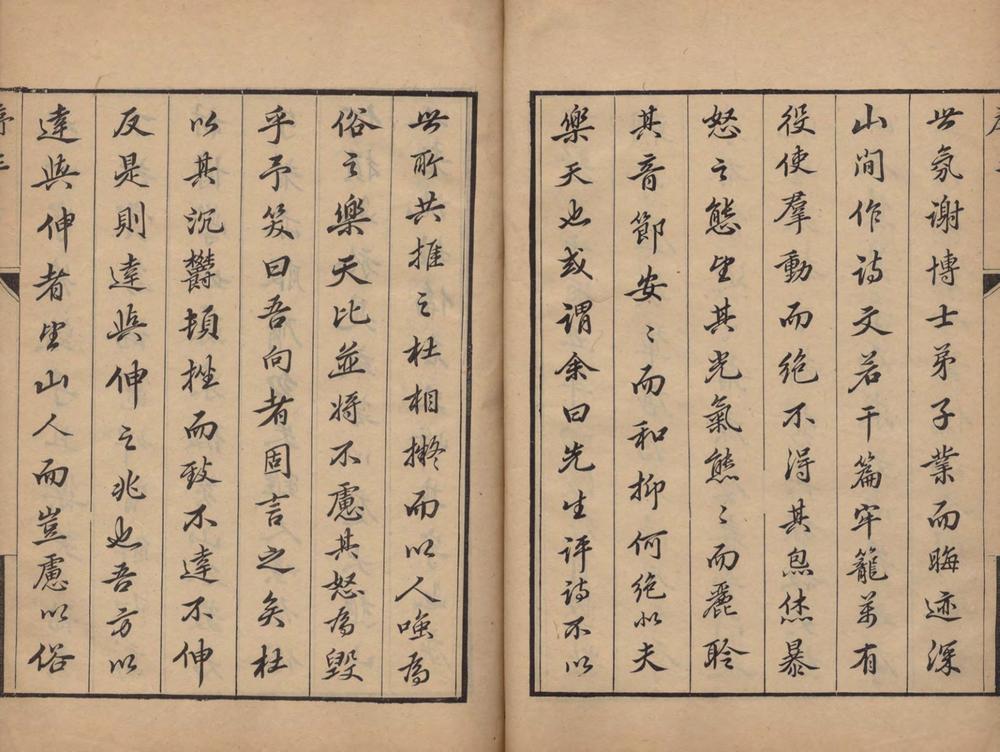 世氛謝博士弟子業而晦迹深
山澗作诗文若干篇牢籠萬有
役使羣動而绝不得其炰烋暴
怒之態坐其光氣熊〻而麗聆
其音節安〻而和抑何绝似夫
樂天也或謂余曰先生评诗不以
世所共推之杜相擬而以人嗤為
俗之樂天比並将不慮其怒為毀
乎予笑曰吾向者固言之矣杜
以其沉欝頓挫而致不達不伸
反是則達與伸之兆也吾方以
達與伸者望山人而豈慮以俗
序三